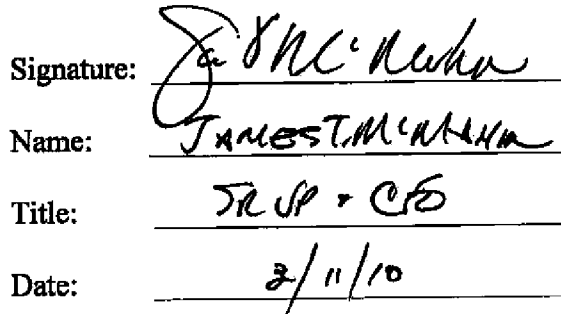 Signature:
Name: JAMES T. McMAHON
Title: SR VP + CFO
Date: 2/11/10